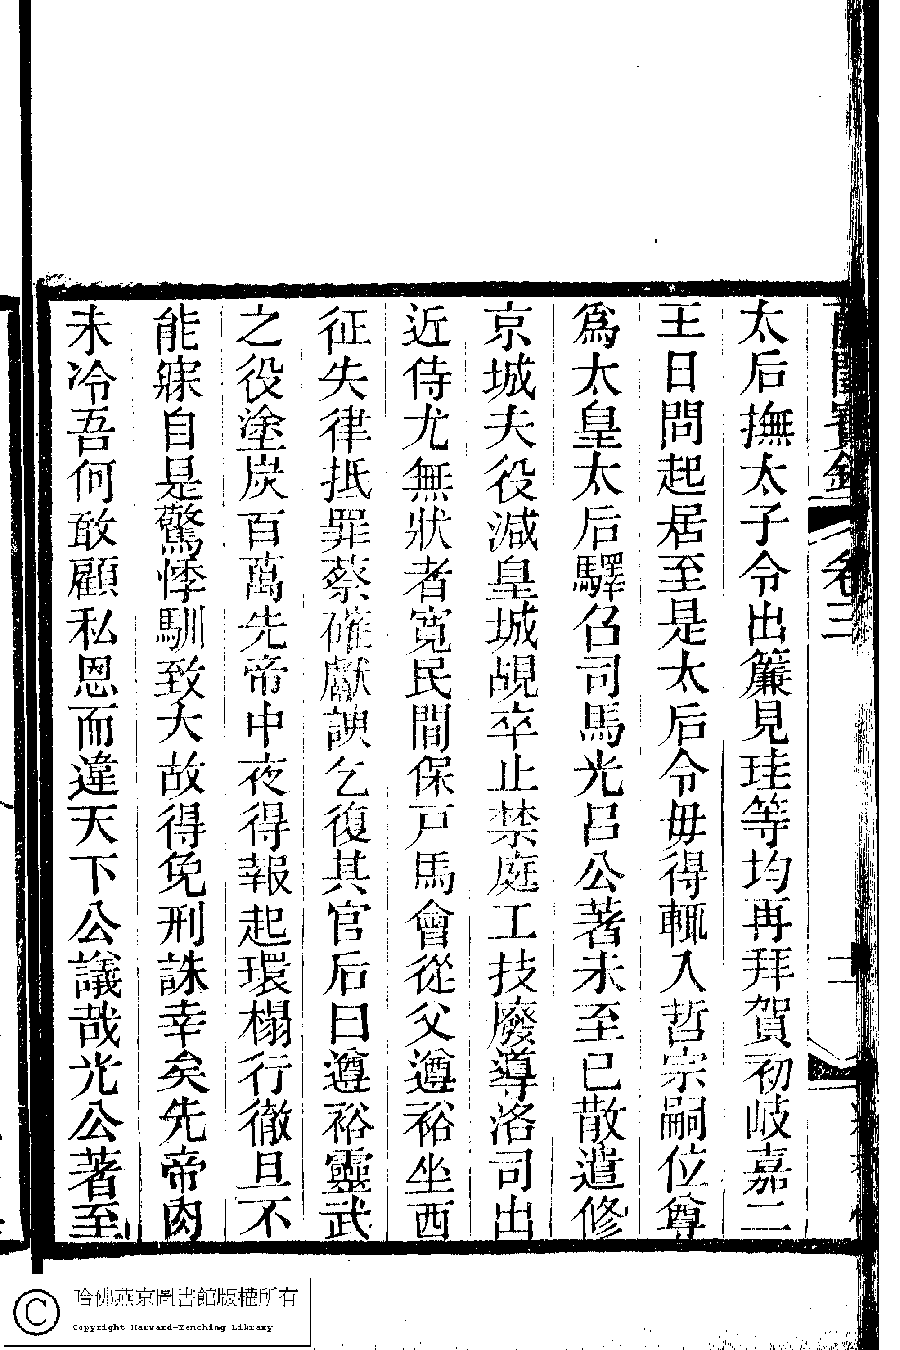 太后撫太子令出簾見珪等均再拜賀初岐嘉二
王日問起居至是太后令毋得輒入哲宗嗣位尊
爲太皇太后驛召司馬光呂公著未至已散遣修
京城夫役減皇城覘卒止禁庭工技廢導洛司出
近侍尤無狀者寬民間保戸馬會從父遵裕坐西
征失律抵罪蔡確獻諛乞復其官后曰遵裕靈武
之役塗炭百萬先帝中夜得報起環榻行徹旦不
能寐自是驚悸馴致大故得免刑誅幸矣先帝肉
未冷吾何敢顧私恩而違天下公議哉光公著至
卷三
哈佛燕京圖書館版權所有
Copyright Harvard-Yenching Library